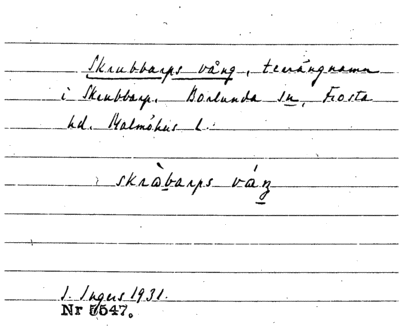 Skrubbarps vång, terrängnamn
i Skrubbarp. Borlunda sn, Frosta
hd. Malmöhus l.
skràbarps váŋ
I. Ingers 1931.
Nr 5547.